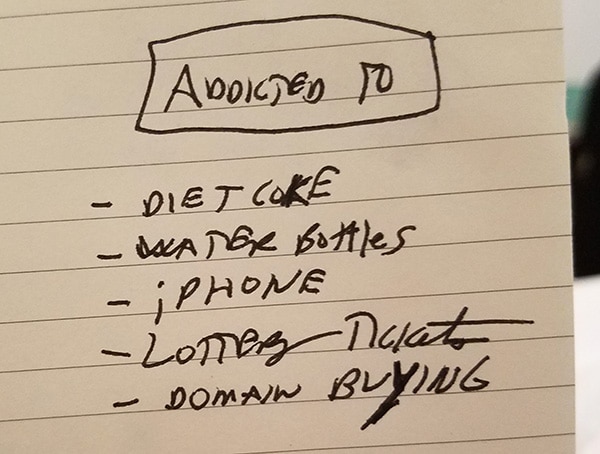 ADDICTED TO
- DIET COKE
- WATER BottlES
- iPHONE
- LOTTERY TICKETS
- DOMAIN BUYING